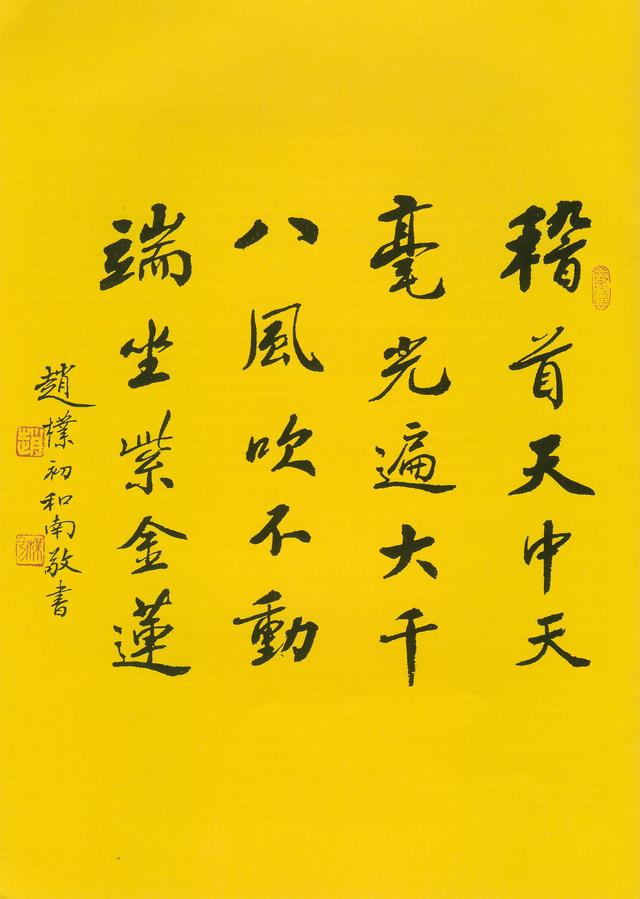 稽首天中天
毫光遍大千
八風吹不動
端坐紫金蓮
趙樸初和南敬書
趙